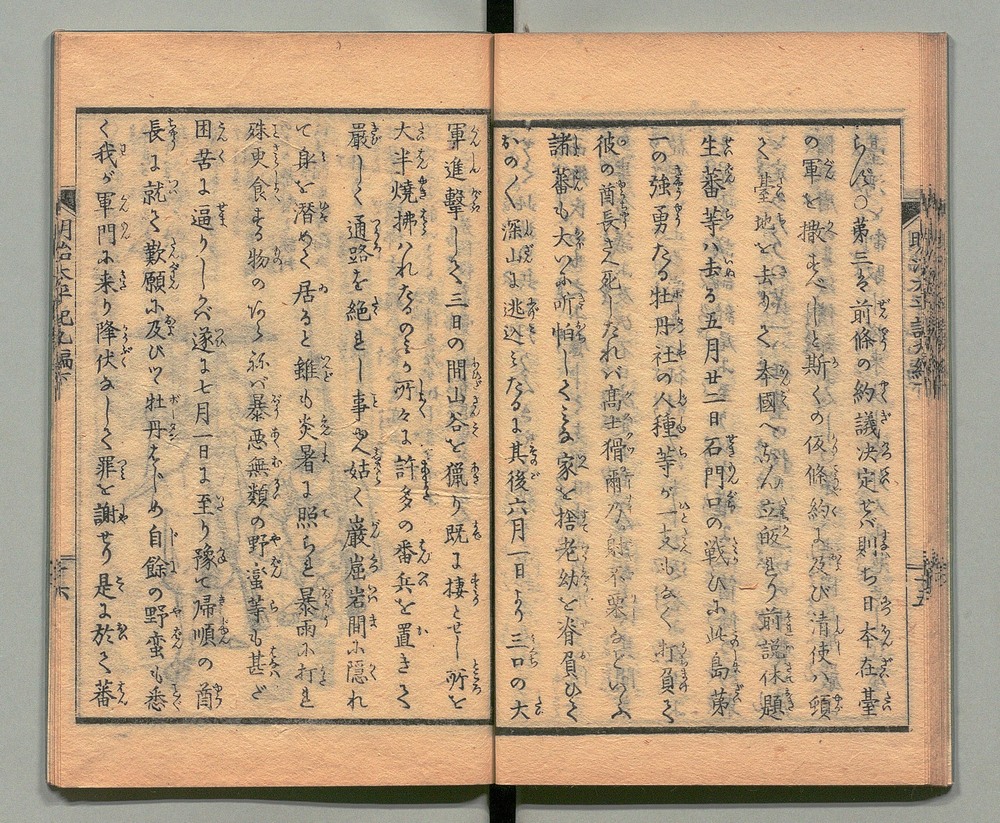 らん〇第三ハ前條の約議決定せバ則ち日本在臺
の軍を撤すべしと斯くの仮條約に及び清使ハ頓
て臺地を去りて本國へぞ立皈れり前説休題
生蕃等ハ去る五月廿二日石門口の戦ひに此島第
一の強勇たる牡丹社の人種等が一支もなく打負て
彼の酋長さへ死したれバ高士猾爾乃射不栗などいふ
諸蕃も大いに所怕しくミな家を捨老幼を脊負ひて
おのおの深山に逃込ミたるに其後六月一日より三口の大
軍進撃して三日の間山谷を獵り既に棲とせし所を
大半焼拂ハれたるのミか所々に許多の番兵を置きて
嚴しく通路を絶れし事ゆゑ姑く巖崫岩間に隠れ
て身を潜めて居ると雖も炎暑に照られ暴雨に打れ
殊更食する物のあらねバ暴悪無類の野蛮等も甚ど
困苦に逼りしかバ遂に七月一日に至り豫て帰順の酋
長に就て歎願に及びて牡丹をはじめ自餘の野蛮も悉
く我が軍門に来り降伏なして罪を謝せり是に於て蕃
明治太平記九編下